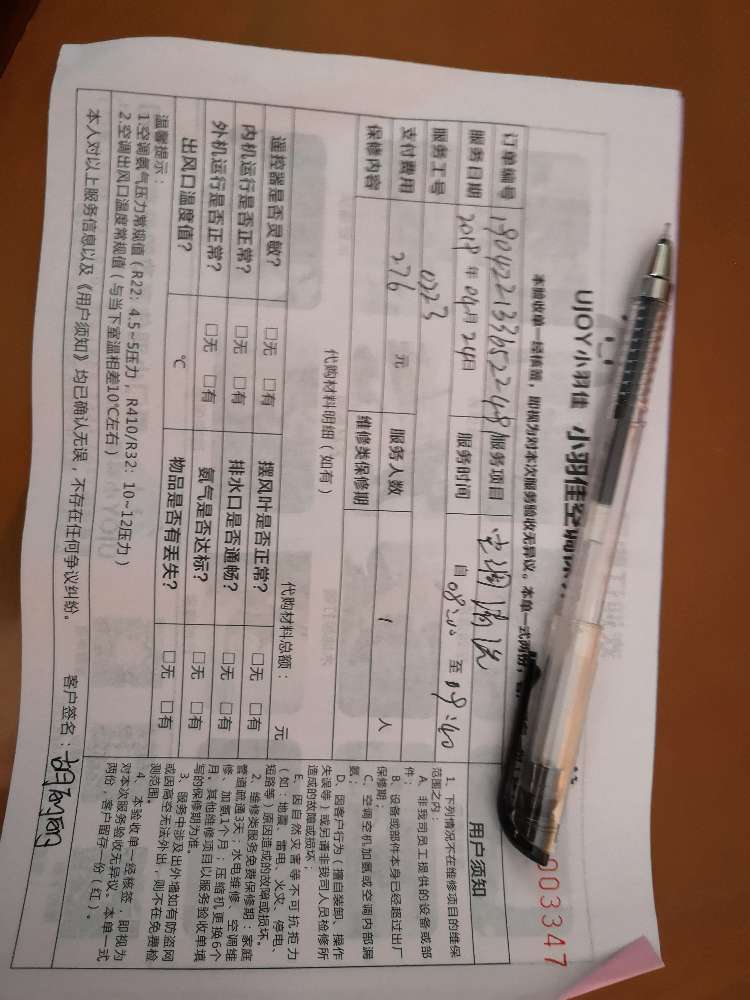 UJOY小羽佳 小羽佳空调
本验收单一经核盖，即视为对本次服务验收无异议。本单一式两份，
003347
订单编号 服务项目 空调清洗
服务日期 2019年04月24日 服务时间 自 08:00 至 09:40
服务工号 0223
支付费用 276 元 服务人数 1 人
保修内容 维修类保修期
代购材料明细（如有） 代购材料总额： 元
遥控器是否灵敏？ □无 □有 摆风叶是否正常？ □无 □有
内机运行是否正常？ □无 □有 排水口是否通畅？ □无 □有
外机运行是否正常？ □无 □有 氨气是否达标？ □无 □有
出风口温度值？ ℃ 物品是否有丢失？ □无 □有
温馨提示：
1.空调氨气压力常规值（R22：4.5~5压力，R410/R32：10~12压力）
2.空调出风口温度常规值（与当下室温相差10℃左右）
本人对以上服务信息以及《用户须知》均已确认无误，不存在任何争议纠纷。
客户签名：
用户须知
1、下列情况不在维修项目的维保
范围之内：
A、非我司员工提供的设备或部
件；
B、设备或部件本身已经超过出厂
保修期；
C、空调空机加氨或空调内部漏
氨；
D、因客户行为（擅自装卸、操作
失误等）或另请非我司人员检修所
造成的故障或损坏；
E、因自然灾害等不可抗拒力
（如：地震、雷电、火灾、停电、
短路等）原因造成的故障或损坏。
2、维修类服务免费保修期：家庭
管道疏通3天；水电维修、空调维
修、加氨1个月；压缩机更换6个
月。其他维修项目以服务验收单填
写的保修期为准。
3、服务中涉及出外墙如有防盗网
或因高空无法外出，则不在免费检
测范围。
4、本验收单一经核签，即视为
对本次服务验收无异议。本单一式
两份，客户留存一份（红）。